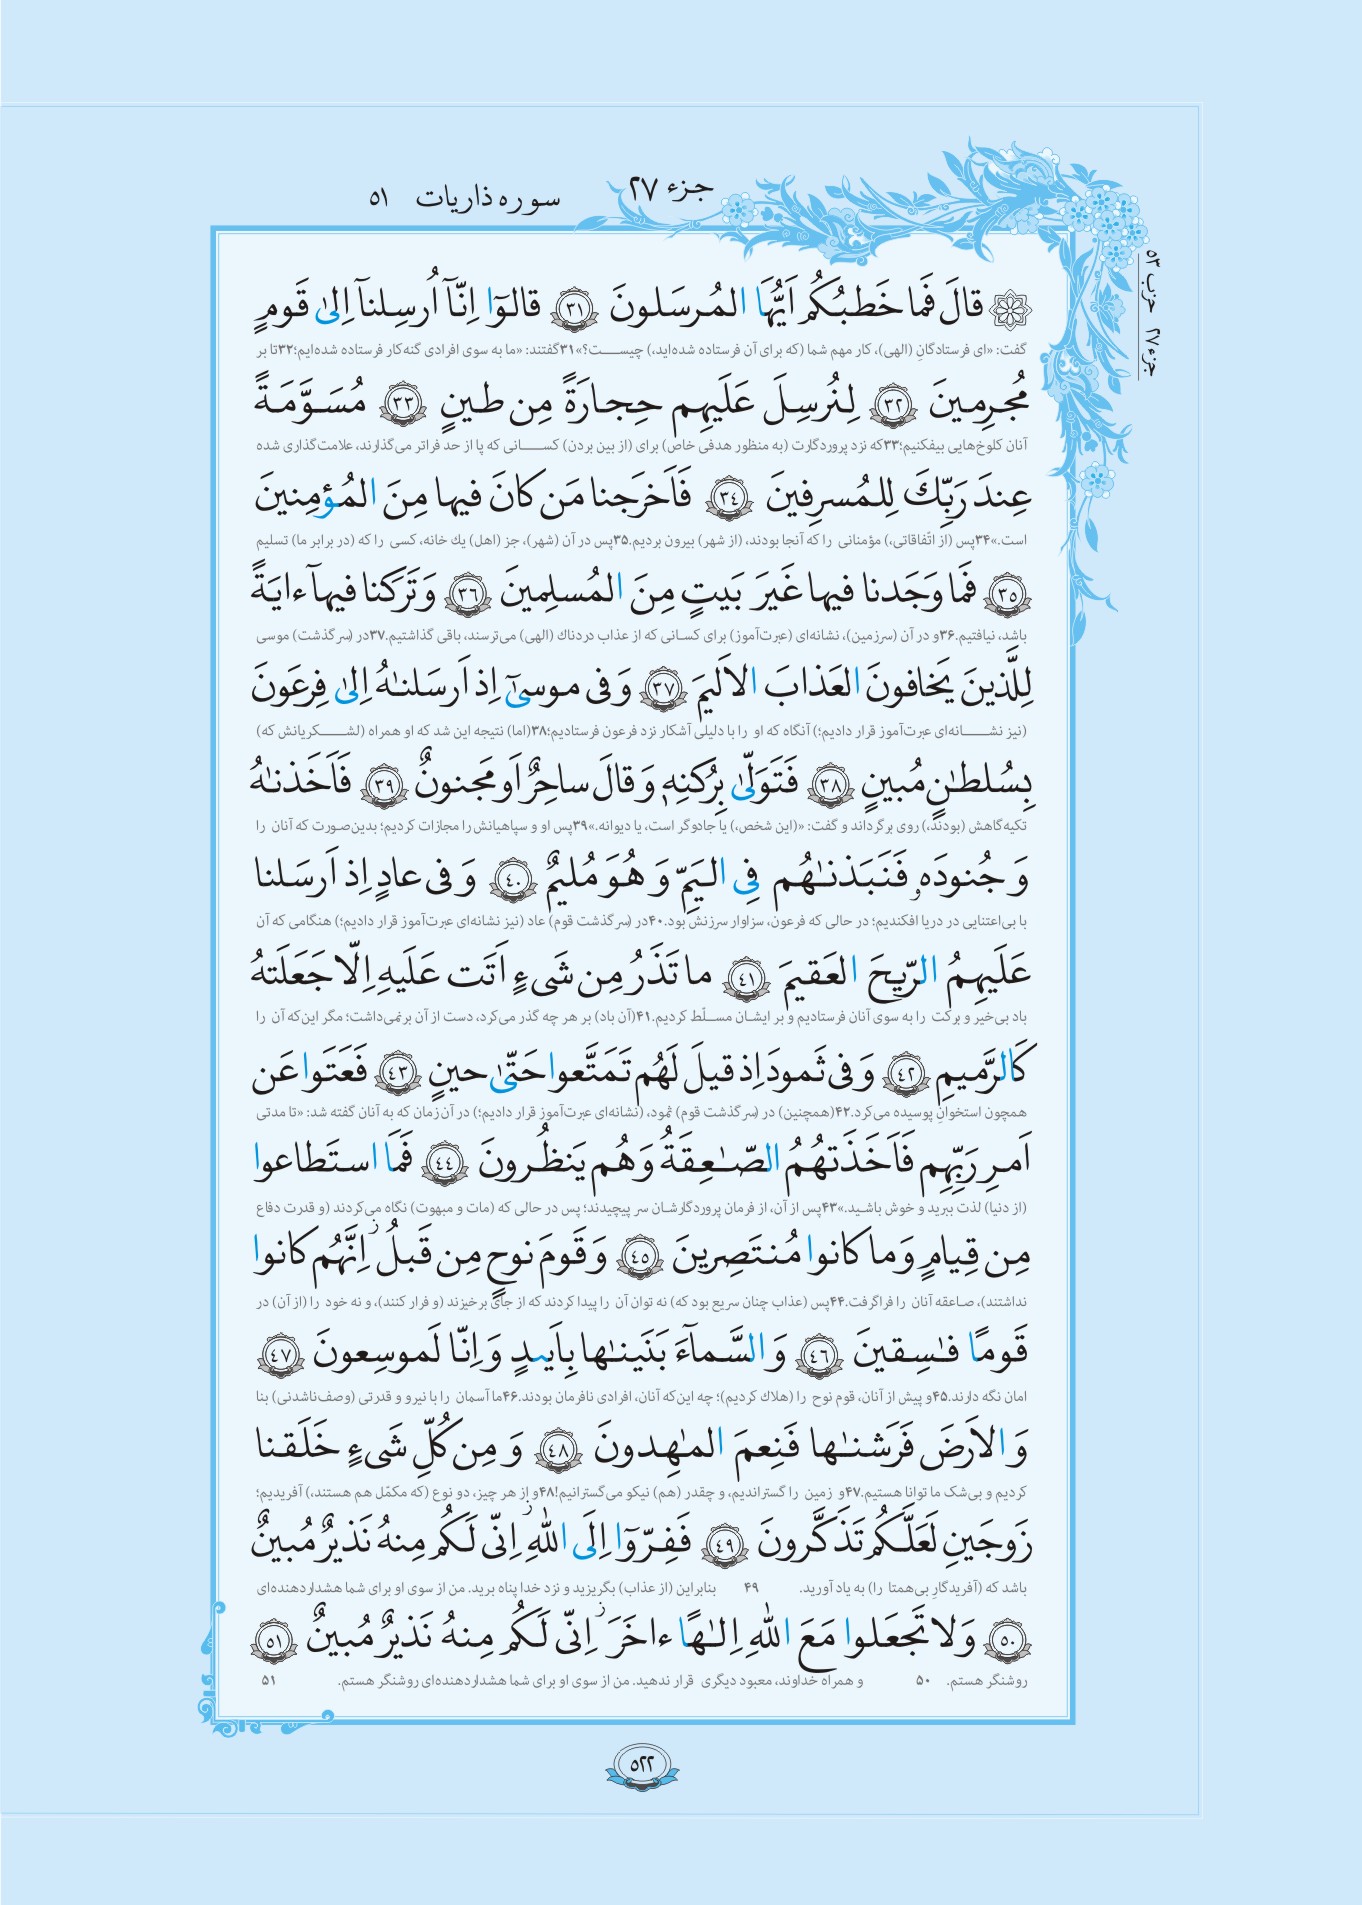 جزء ۲۷
سوره ذاریات ۵۱
جزء ۲۷ حزب ۵۳
قالَ فَما خَطبُکُم اَیُّهَا المُرسَلونَ ﴿٣١﴾ قالوٓا اِنّآ اُرسِلنآ اِلىٰ قَومٍ
گفت: «ای فرستادگانِ (الهی)، کار مهم شما (که برای آن فرستاده شده‌اید،) چیست؟»۳۱گفتند: «ما به سوی افرادی گنه‌کار فرستاده شده‌ایم؛۳۲تا بر
مُجرِمینَ ﴿٣٢﴾ لِنُرسِلَ عَلَیهِم حِجارَةً مِن طینٍ ﴿٣٣﴾ مُسَوَّمَةً
آنان کلوخ‌هایی بیفکنیم؛۳۳که نزد پروردگارت (به منظور هدفی خاص) برای (از بین بردن) کسانی که پا از حد فراتر می‌گذارند، علامت‌گذاری شده
عِندَ رَبِّکَ لِلمُسرِفینَ ﴿٣٤﴾ فَاَخرَجنا مَن کانَ فیها مِنَ المُؤمِنینَ
است.»۳۴پس (از اتّفاقاتی،) مؤمنانی را که آنجا بودند، (از شهر) بیرون بردیم.۳۵پس در آن (شهر)، جز (اهل) یك خانه، کسی را که (در برابر ما) تسلیم
﴿٣٥﴾ فَما وَجَدنا فیها غَیرَ بَیتٍ مِنَ المُسلِمینَ ﴿٣٦﴾ وَ تَرَکنا فیهآ ءایَةً
باشد، نیافتیم.۳۶و در آن (سرزمین)، نشانه‌ای (عبرت‌آموز) برای کسانی که از عذاب دردناك (الهی) می‌ترسند، باقی گذاشتیم.۳۷در (سرگذشت) موسی
لِلَّذینَ یَخافونَ العَذابَ الاَلیمَ ﴿٣٧﴾ وَ فى موسىٰٓ اِذ اَرسَلنٰهُ اِلىٰ فِرعَونَ
(نیز نشانه‌ای عبرت‌آموز قرار دادیم؛) آنگاه که او را با دلیلی آشکار نزد فرعون فرستادیم؛۳۸(اما) نتیجه این شد که او همراه (لشکریانش که)
بِسُلطٰنٍ مُبینٍ ﴿٣٨﴾ فَتَوَلّىٰ بِرُکنِهٖ وَ قالَ ساحِرٌ اَو مَجنونٌ ﴿٣٩﴾ فَاَخَذنٰهُ
تکیه‌گاهش (بودند،) روی برگرداند و گفت: «(این شخص،) یا جادوگر است، یا دیوانه.»۳۹پس او و سپاهیانش را مجازات کردیم؛ بدین‌صورت که آنان را
وَ جُنودَهٗ فَنَبَذنٰهُم فِى الیَمِّ وَ هُوَ مُلیمٌ ﴿٤٠﴾ وَ فى عادٍ اِذ اَرسَلنا
با بی‌اعتنایی در دریا افکندیم؛ در حالی که فرعون، سزاوار سرزنش بود.۴۰در (سرگذشت قوم) عاد (نیز نشانه‌ای عبرت‌آموز قرار دادیم؛) هنگامی که آن
عَلَیهِمُ الرّیحَ العَقیمَ ﴿٤١﴾ ما تَذَرُ مِن شَىءٍ اَتَت عَلَیهِ اِلّا جَعَلَتهُ
باد بی‌خیر و برکت را به سوی آنان فرستادیم و بر ایشان مسلّط کردیم.۴۱(آن باد) بر هر چه گذر می‌کرد، دست از آن برنمی‌داشت؛ مگر این‌که آن را
کَالرَّمیمِ ﴿٤٢﴾ وَ فى ثَمودَ اِذ قیلَ لَهُم تَمَتَّعوا حَتّىٰ حینٍ ﴿٤٣﴾ فَعَتَوا عَن
همچون استخوان پوسیده می‌کرد.۴۲(همچنین) در (سرگذشت قوم) ثمود، (نشانه‌ای عبرت‌آموز قرار دادیم؛) در آن‌زمان که به آنان گفته شد: «تا مدتی
اَمرِ رَبِّهِم فَاَخَذَتهُمُ الصّٰعِقَةُ وَ هُم یَنظُرونَ ﴿٤٤﴾ فَمَا استَطاعوا
(از دنیا) لذت ببرید و خوش باشید.»۴۳پس از آن، از فرمان پروردگارشان سر پیچیدند؛ پس در حالی که (مات و مبهوت) نگاه می‌کردند (و قدرت دفاع
مِن قِیامٍ وَ ما کانوا مُنتَصِرینَ ﴿٤٥﴾ وَ قَومَ نوحٍ مِن قَبلُ ز اِنَّهُم کانوا
نداشتند)، صاعقه آنان را فراگرفت.۴۴پس (عذاب چنان سریع بود که) نه توان آن را پیدا کردند که از جای برخیزند (و فرار کنند)، و نه خود را (از آن) در
قَومًا فٰسِقینَ ﴿٤٦﴾ وَ السَّمآءَ بَنَینٰها بِاَیىدٍ وَ اِنّا لَموسِعونَ ﴿٤٧﴾
امان نگه دارند.۴۵و پیش از آنان، قوم نوح را (هلاك کردیم)؛ چه این‌که آنان، افرادی نافرمان بودند.۴۶ما آسمان را با نیرو و قدرتی (وصف‌ناشدنی) بنا
وَ الاَرضَ فَرَشنٰها فَنِعمَ المٰهِدونَ ﴿٤٨﴾ وَ مِن کُلِّ شَىءٍ خَلَقنا
کردیم و بی‌شک ما توانا هستیم.۴۷و زمین را گستراندیم، و چقدر (هم) نیکو می‌گسترانیم!۴۸و از هر چیز، دو نوع (که مکمّل هم هستند،) آفریدیم؛
زَوجَینِ لَعَلَّکُم تَذَکَّرونَ ﴿٤٩﴾ فَفِرّوٓا اِلَى اللهِ ز اِنّى لَکُم مِنهُ نَذیرٌ مُبینٌ
باشد که (آفریدگارِ بی‌همتا را) به یاد آورید. ۴۹ بنابراین (از عذاب) بگریزید و نزد خدا پناه برید. من از سوی او برای شما هشداردهنده‌ای
﴿٥٠﴾ وَ لا تَجعَلوا مَعَ اللهِ اِلٰهًا ءاخَرَ ز اِنّى لَکُم مِنهُ نَذیرٌ مُبینٌ ﴿٥١﴾
روشنگر هستم. ۵۰ و همراه خداوند، معبود دیگری قرار ندهید. من از سوی او برای شما هشداردهنده‌ای روشنگر هستم. ۵۱
۵۲۲